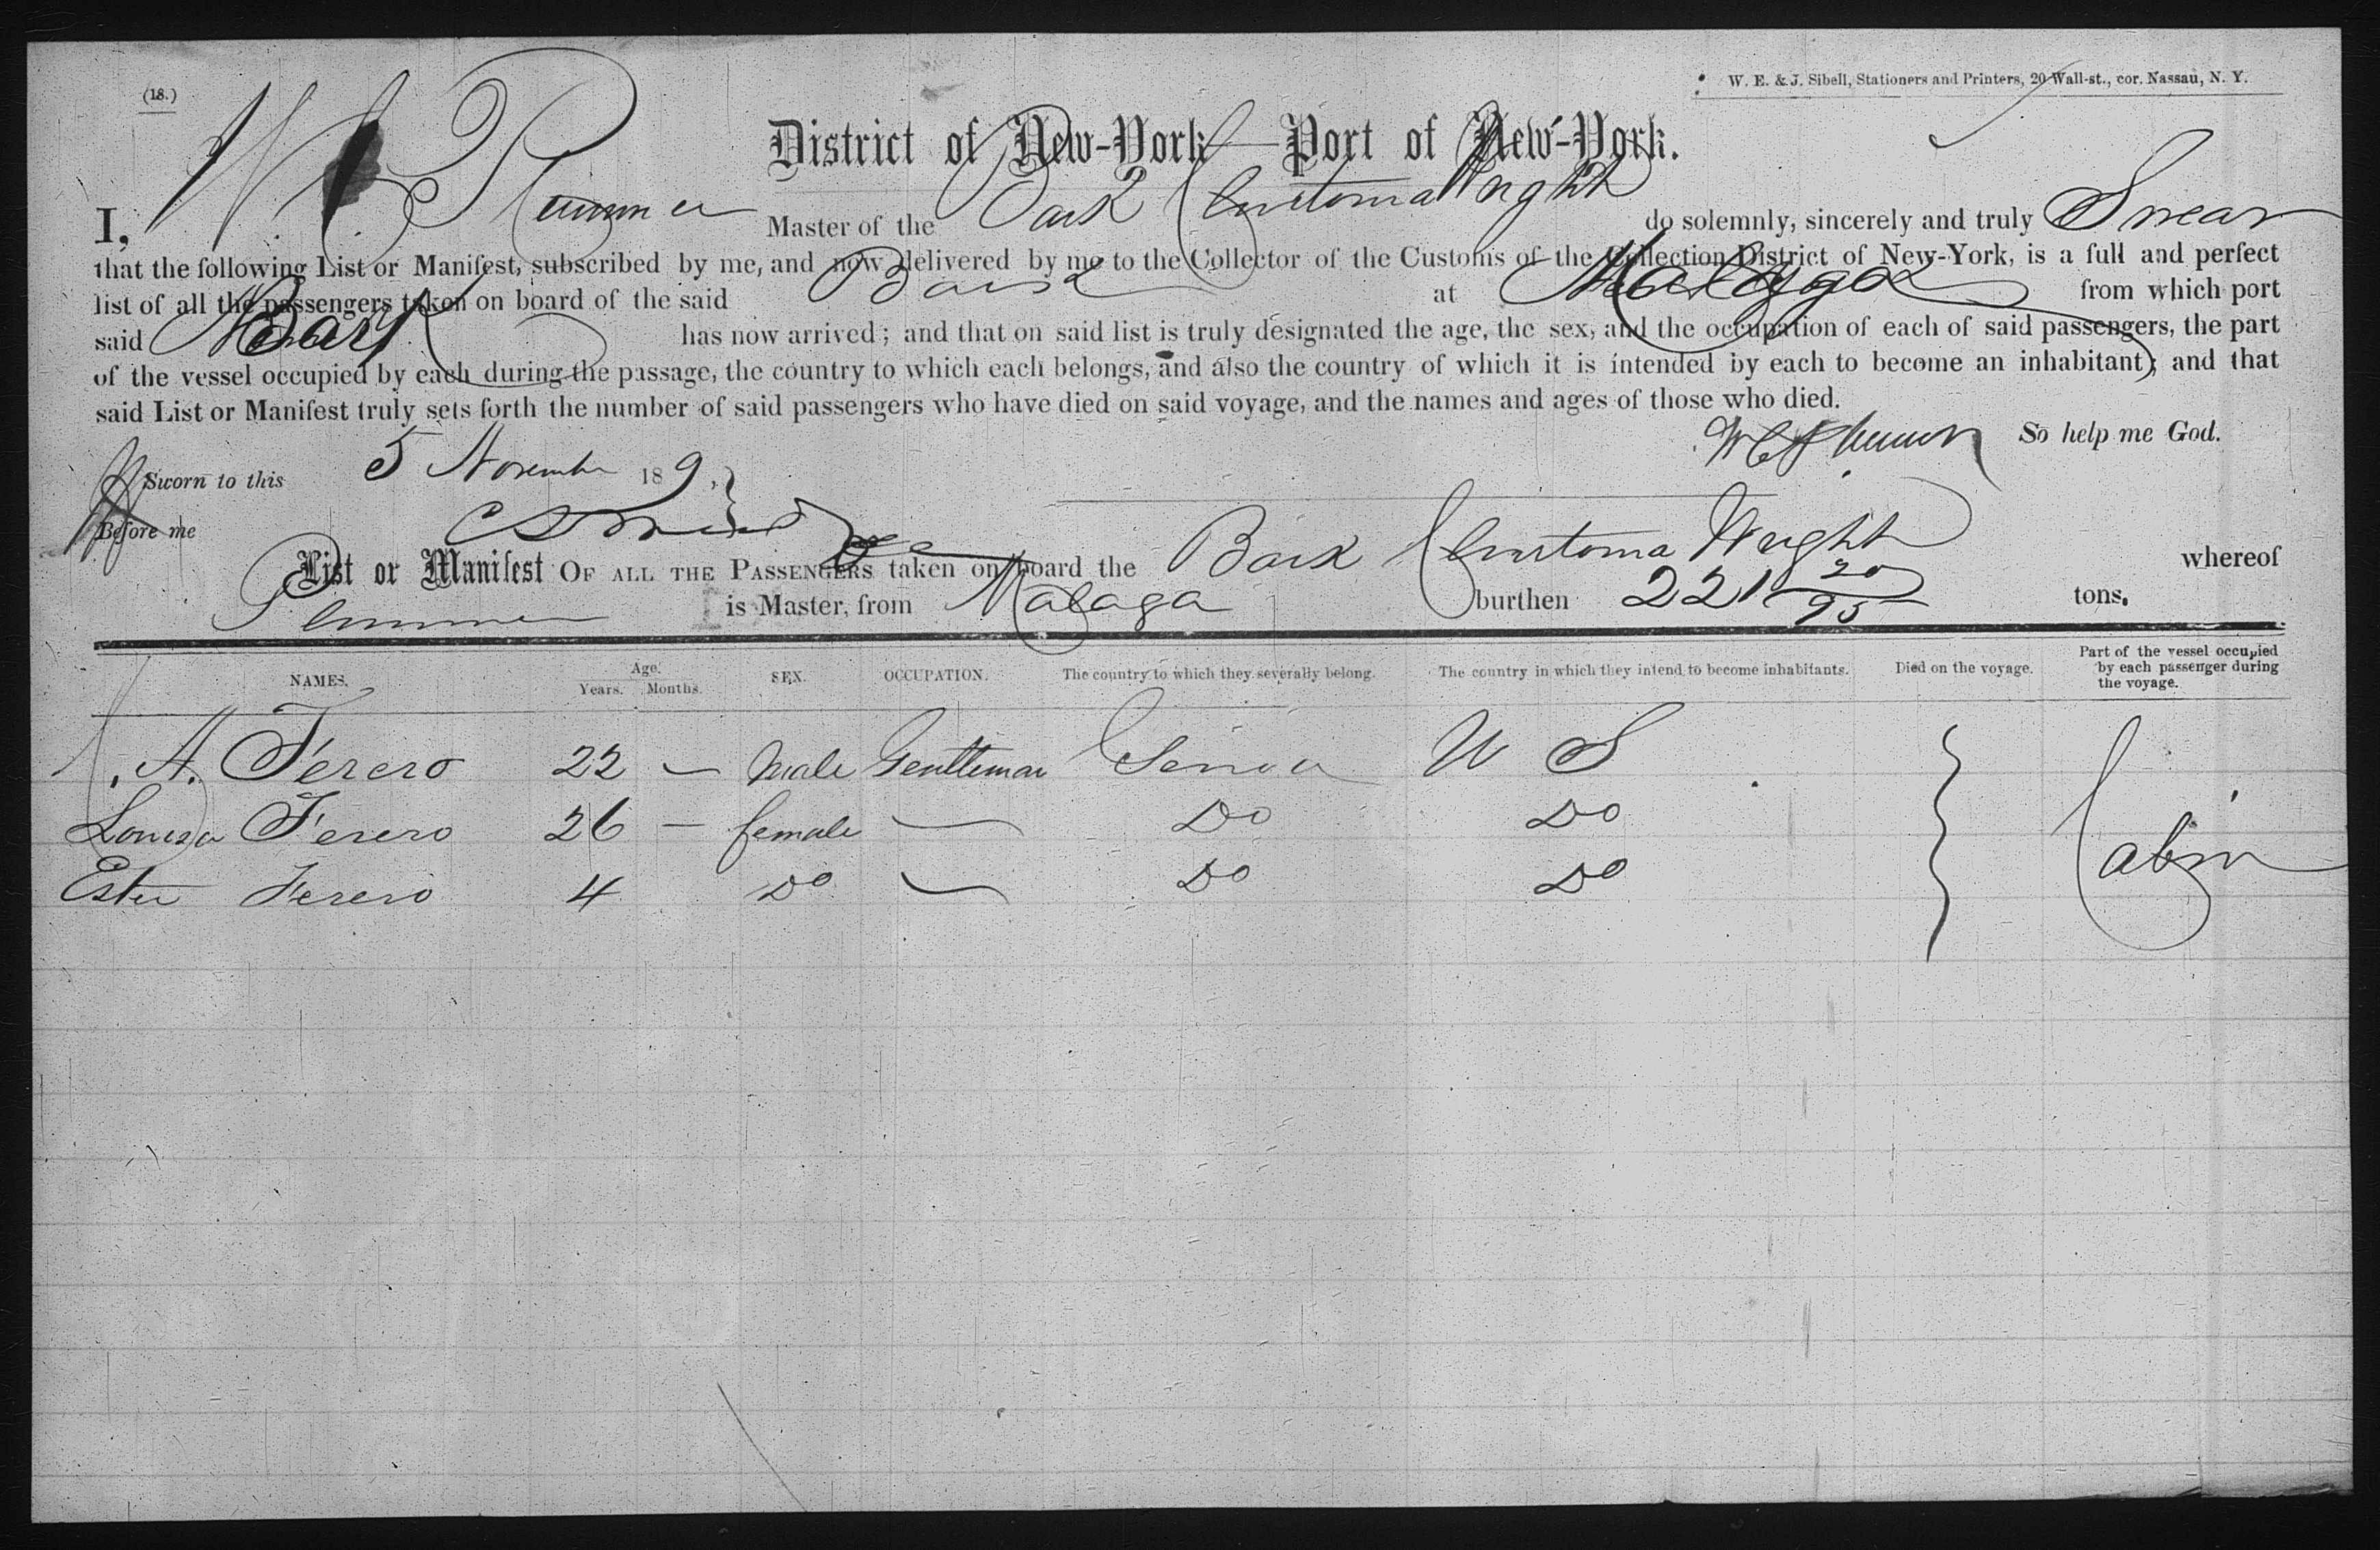 (18.)
W. E. & J. Sibell, Stationers and Printers, 20 Wall-st., cor. Nassau, N. Y.
District of New-York—Port of New-York.
I, W C Plummer Master of the Bark Wright do solemnly, sincerely and truly Swear
that the following List or Manifest, subscribed by me, and now delivered by me to the Collector of the Customs of the Collection District of New-York, is a full and perfect
list of all the passengers taken on board of the said Bark at Malaga from which port
said Bark has now arrived; and that on said list is truly designated the age, the sex, and the occupation of each of said passengers, the part
of the vessel occupied by each during the passage, the country to which each belongs, and also the country of which it is intended by each to become an inhabitant; and that
said List or Manifest truly sets forth the number of said passengers who have died on said voyage, and the names and ages of those who died.
W C Plummer So help me God.
Sworn to this 5 November 189
Before me
List or Manifest OF ALL THE PASSENGERS taken on board the Bark Wright whereof
Plummer is Master, from Malaga burthen 221 20/95 tons.
NAMES. Age. Years. Months. SEX. OCCUPATION. The country to which they severally belong. The country in which they intend to become inhabitants. Died on the voyage. Part of the vessel occupied by each passenger during the voyage.
A. Ferero 22 — Male Gentleman Genoa U S
Louisa Ferero 26 — female — Do Do Cabin
Ester Ferero 4 Do — Do Do